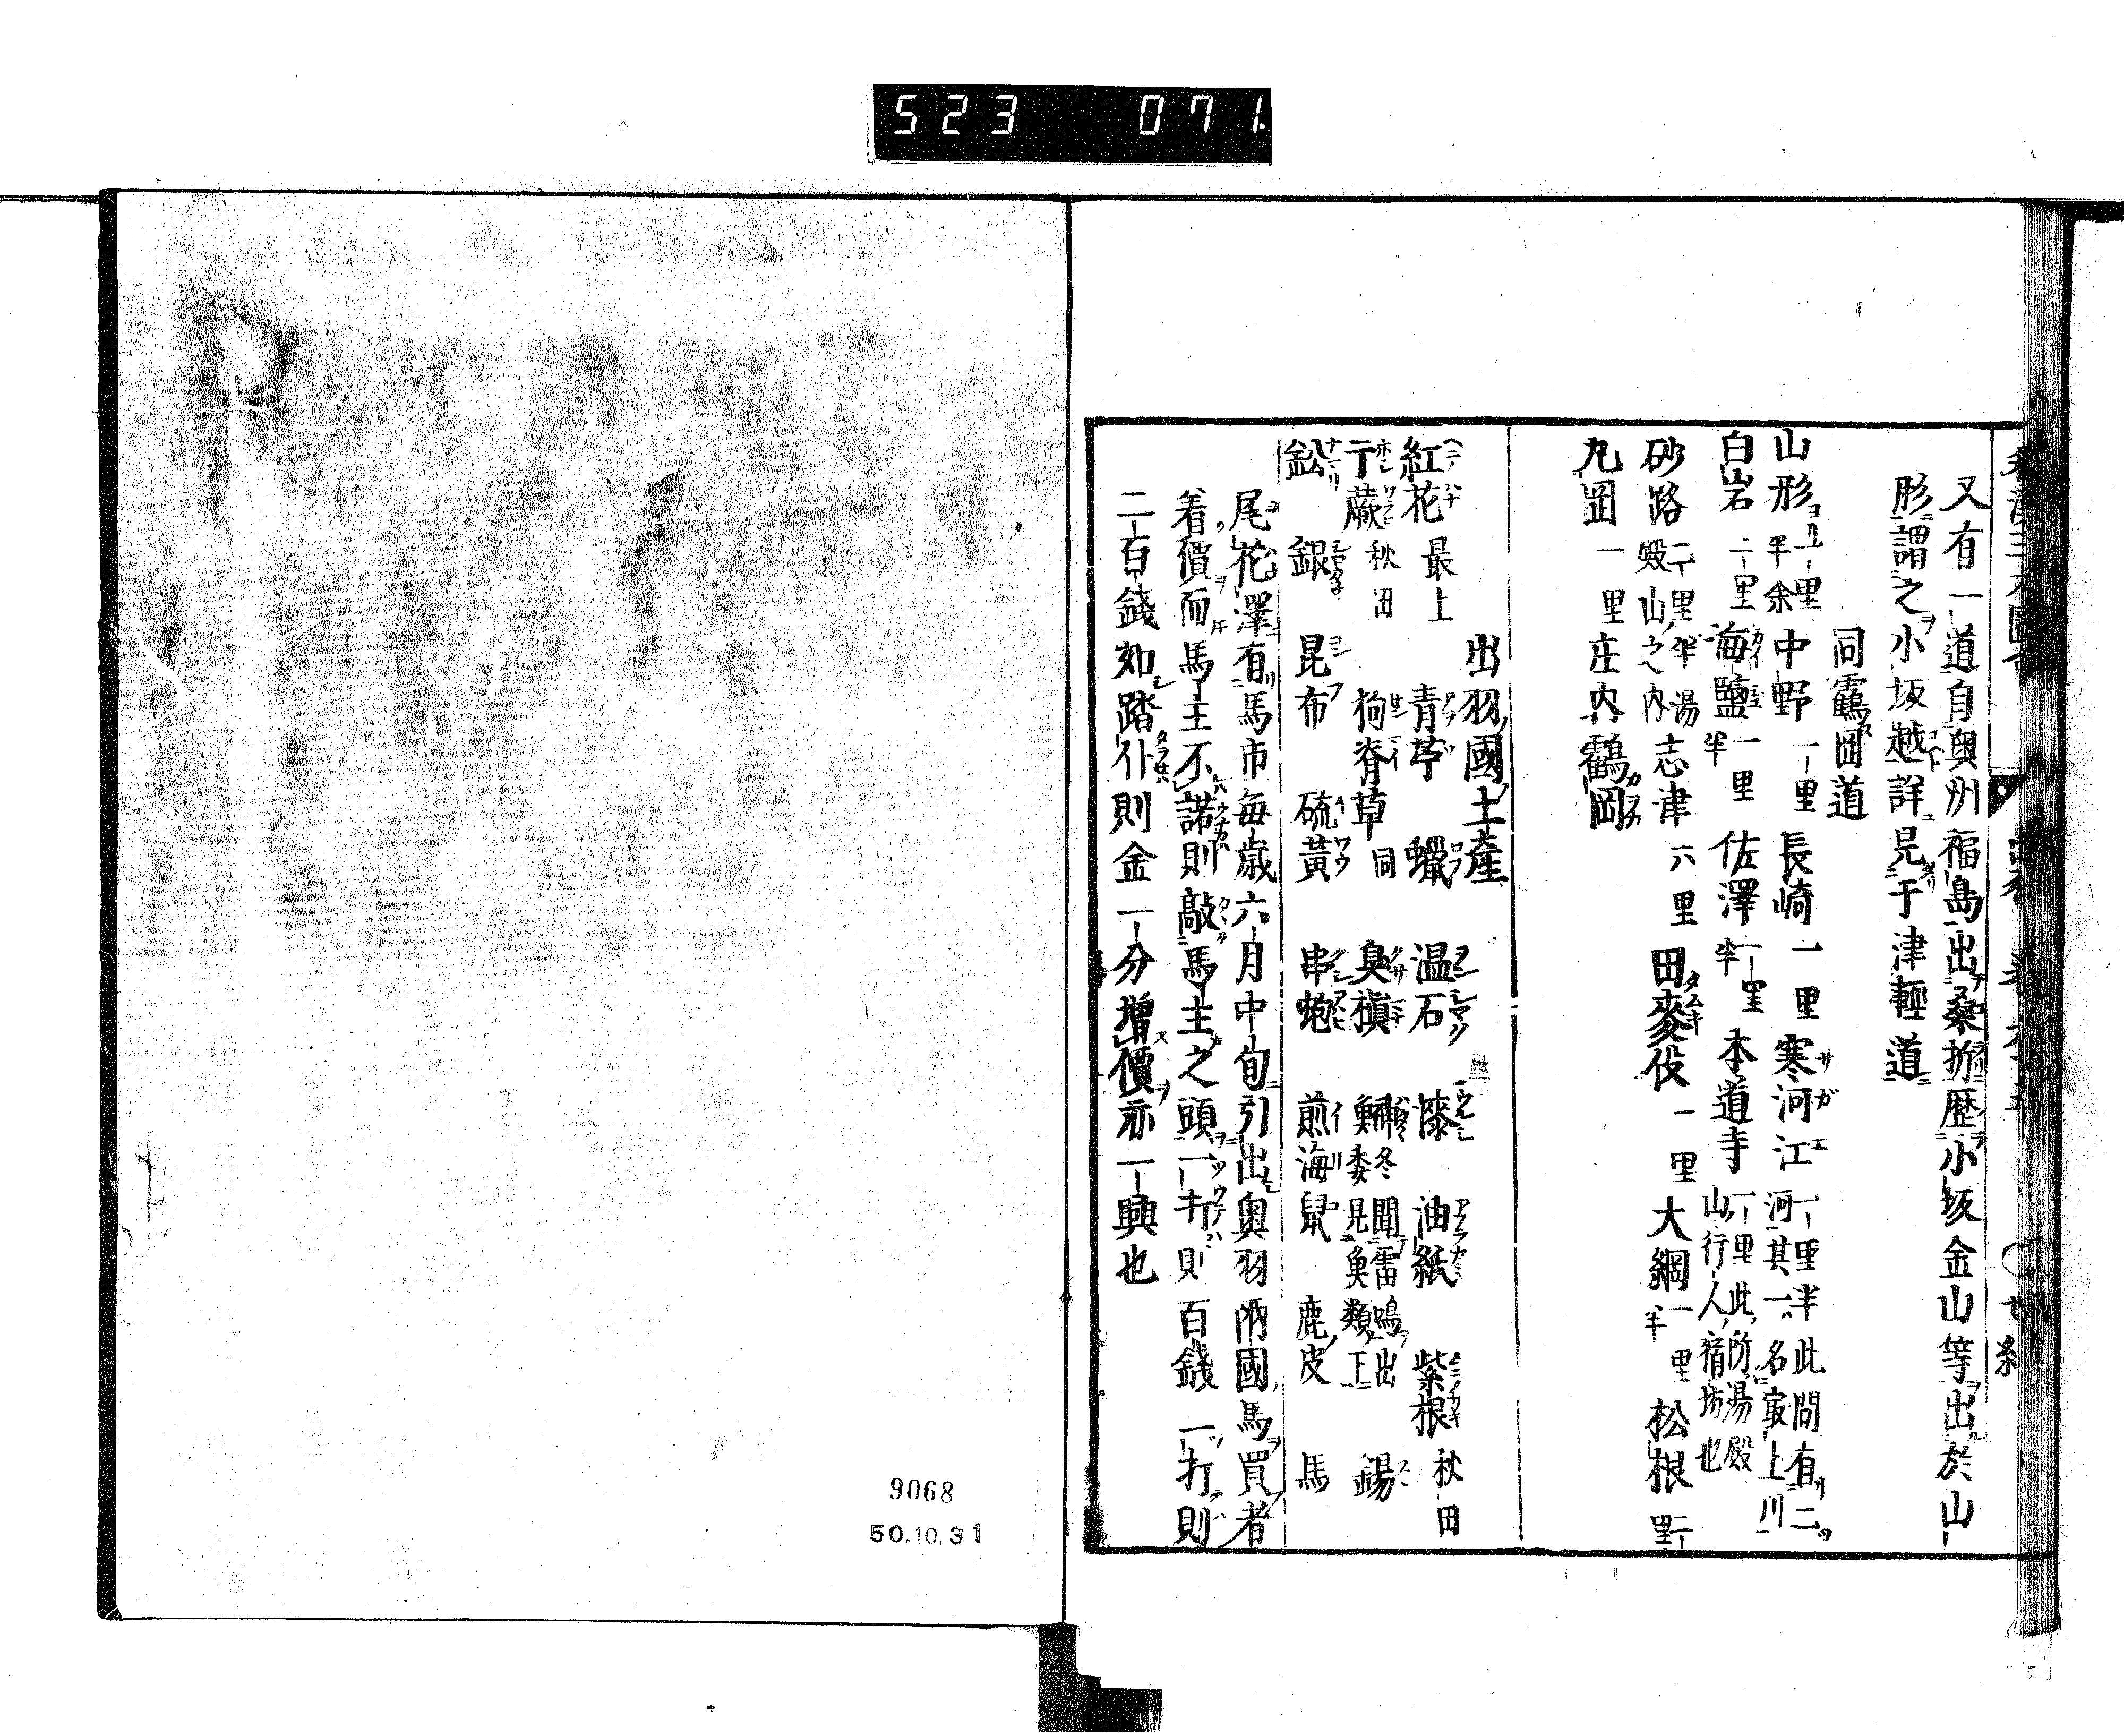 523 071
又有一道自奥州福島出桑折歴小坂金山等出於山
形謂之小坂越詳見于津輕道
同鶴岡道
山形 一里半余 中野 一里 長崎 一里 寒河江 一里半此間有二河其一名最上川
白岩 二里 海鹽 一里半 佐澤 一里半 本道寺 一里此所湯殿山行人宿坊也
砂路 二里半湯殿山之内 志津 六里 田麥俣 一里 大綱 一里半 松根 二里
丸岡 一里 庄内鶴岡
出羽國土産
紅花 最上 青苧 蠟 温石 漆 油紙 紫根 秋田
干蕨 秋田 狗脊草 同 臭槇 鰰 冬聞雷鳴出魚委見魚類下 錫
鈆 銀 昆布 硫黄 串蚫 煎海鼠 鹿皮 馬
尾花澤有馬市毎歳六月中旬引出奥羽兩國馬買者
着價而馬主不諾則敲馬主之頭一打則百錢二打則
二百錢如踏仆則金一分増價亦一興也
9068
50.10.31